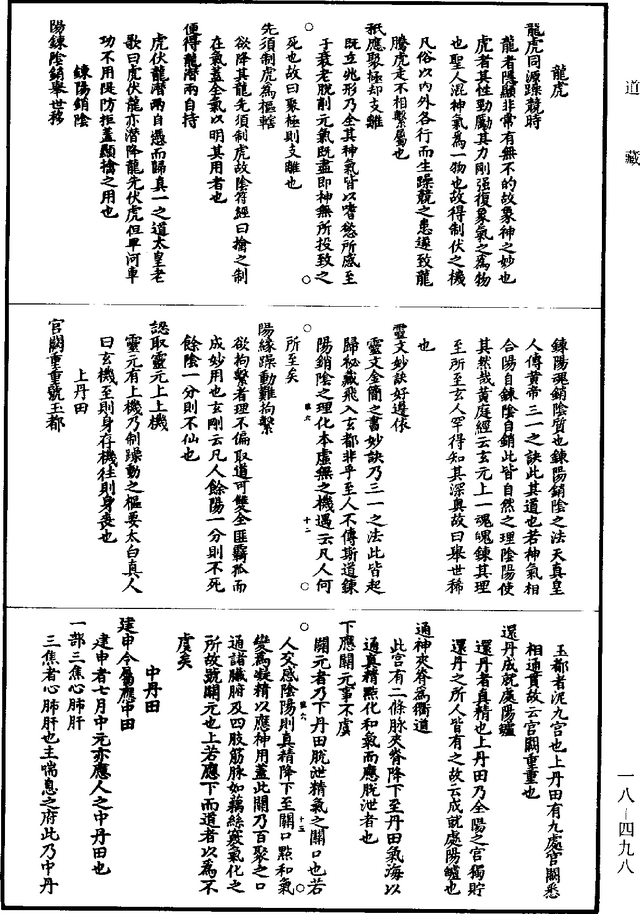 道藏
龍虎
龍虎同源躁競時
龍者隱顯非常有無不的故象神之妙也
虎者其性勁勵其力剛強復象氣之為物
也聖人混神氣為一物也故得制伏之機
凡俗以內外各行而生躁競之患遂致龍
騰虎走不相繫屬也
秖應聚極却支離
既立兆形乃全其神氣皆以嗜慾所感至
于衰老脫削元氣既盡即神無所投致之
死也故曰聚極則支離也
先須制虎為樞轄
欲降其龍先須制虎故陰符經曰擒之制
在氣蓋全氣以明其用者也
便得龍潛兩自持
虎伏龍潛兩自憑而歸真一之道太皇老
歌曰虎伏龍亦潛降龍先伏虎但畢河車
功不用隄防拒蓋顯擒之用也
鍊陽銷陰
陽鍊陰銷舉世移
鍊陽魂銷陰質也鍊陽銷陰之法天真皇
人傳黃帝三一之訣此其道也若神氣相
合陽自鍊陰自銷此皆自然之理陰陽使
其然哉黃庭經云玄元上一魂魄鍊其理
至所至玄人罕得知其深奧故曰舉世稀
也
靈文妙訣好遵依
靈文金簡之書妙訣乃三一之法此皆起
歸祕藏飛入玄都非乎至人不傳斯道鍊
陽銷陰之理化本虛無之機遇云凡人何
所至矣
陽緣躁動難拘繫
欲拘繫者理不偏取道可雙全匪羈孤而
成妙用也玄剛云凡人餘陽一分則不死
餘陰一分則不仙也
認取靈元上上機
靈元有上機乃制躁動之樞要太白真人
曰玄機至則身存機往則身喪也
上丹田
官闕重重號玉都
玉都者泥九宮也上丹田有九處官闕悉
相通貫故云官闕重重也
還丹成就處陽爐
還丹者真精也上丹田乃全陽之官獨貯
還丹之所人皆有之故云成就處陽爐也
通神夾脊為衢道
此宮有二條脉夾脊降下至丹田氣海以
通真精點化和氣而應脫泄者也
下應關元事不虞
關元者乃下丹田脫泄精氣之關口也若
人交感陰陽則真精降下至關口點和氣
變為凝精以應神用蓋此關乃百聚之口
通諸臟腑及四肢筋脉如藕絲竅氣化之
所故號關元也上若應下而道者以為不
虞矣
中丹田
建申令屬應中田
建申者七月中元亦應人之中丹田也
一部三焦心肺肝
三焦者心肺肝也主喘息之府此乃中丹
一八—四九八